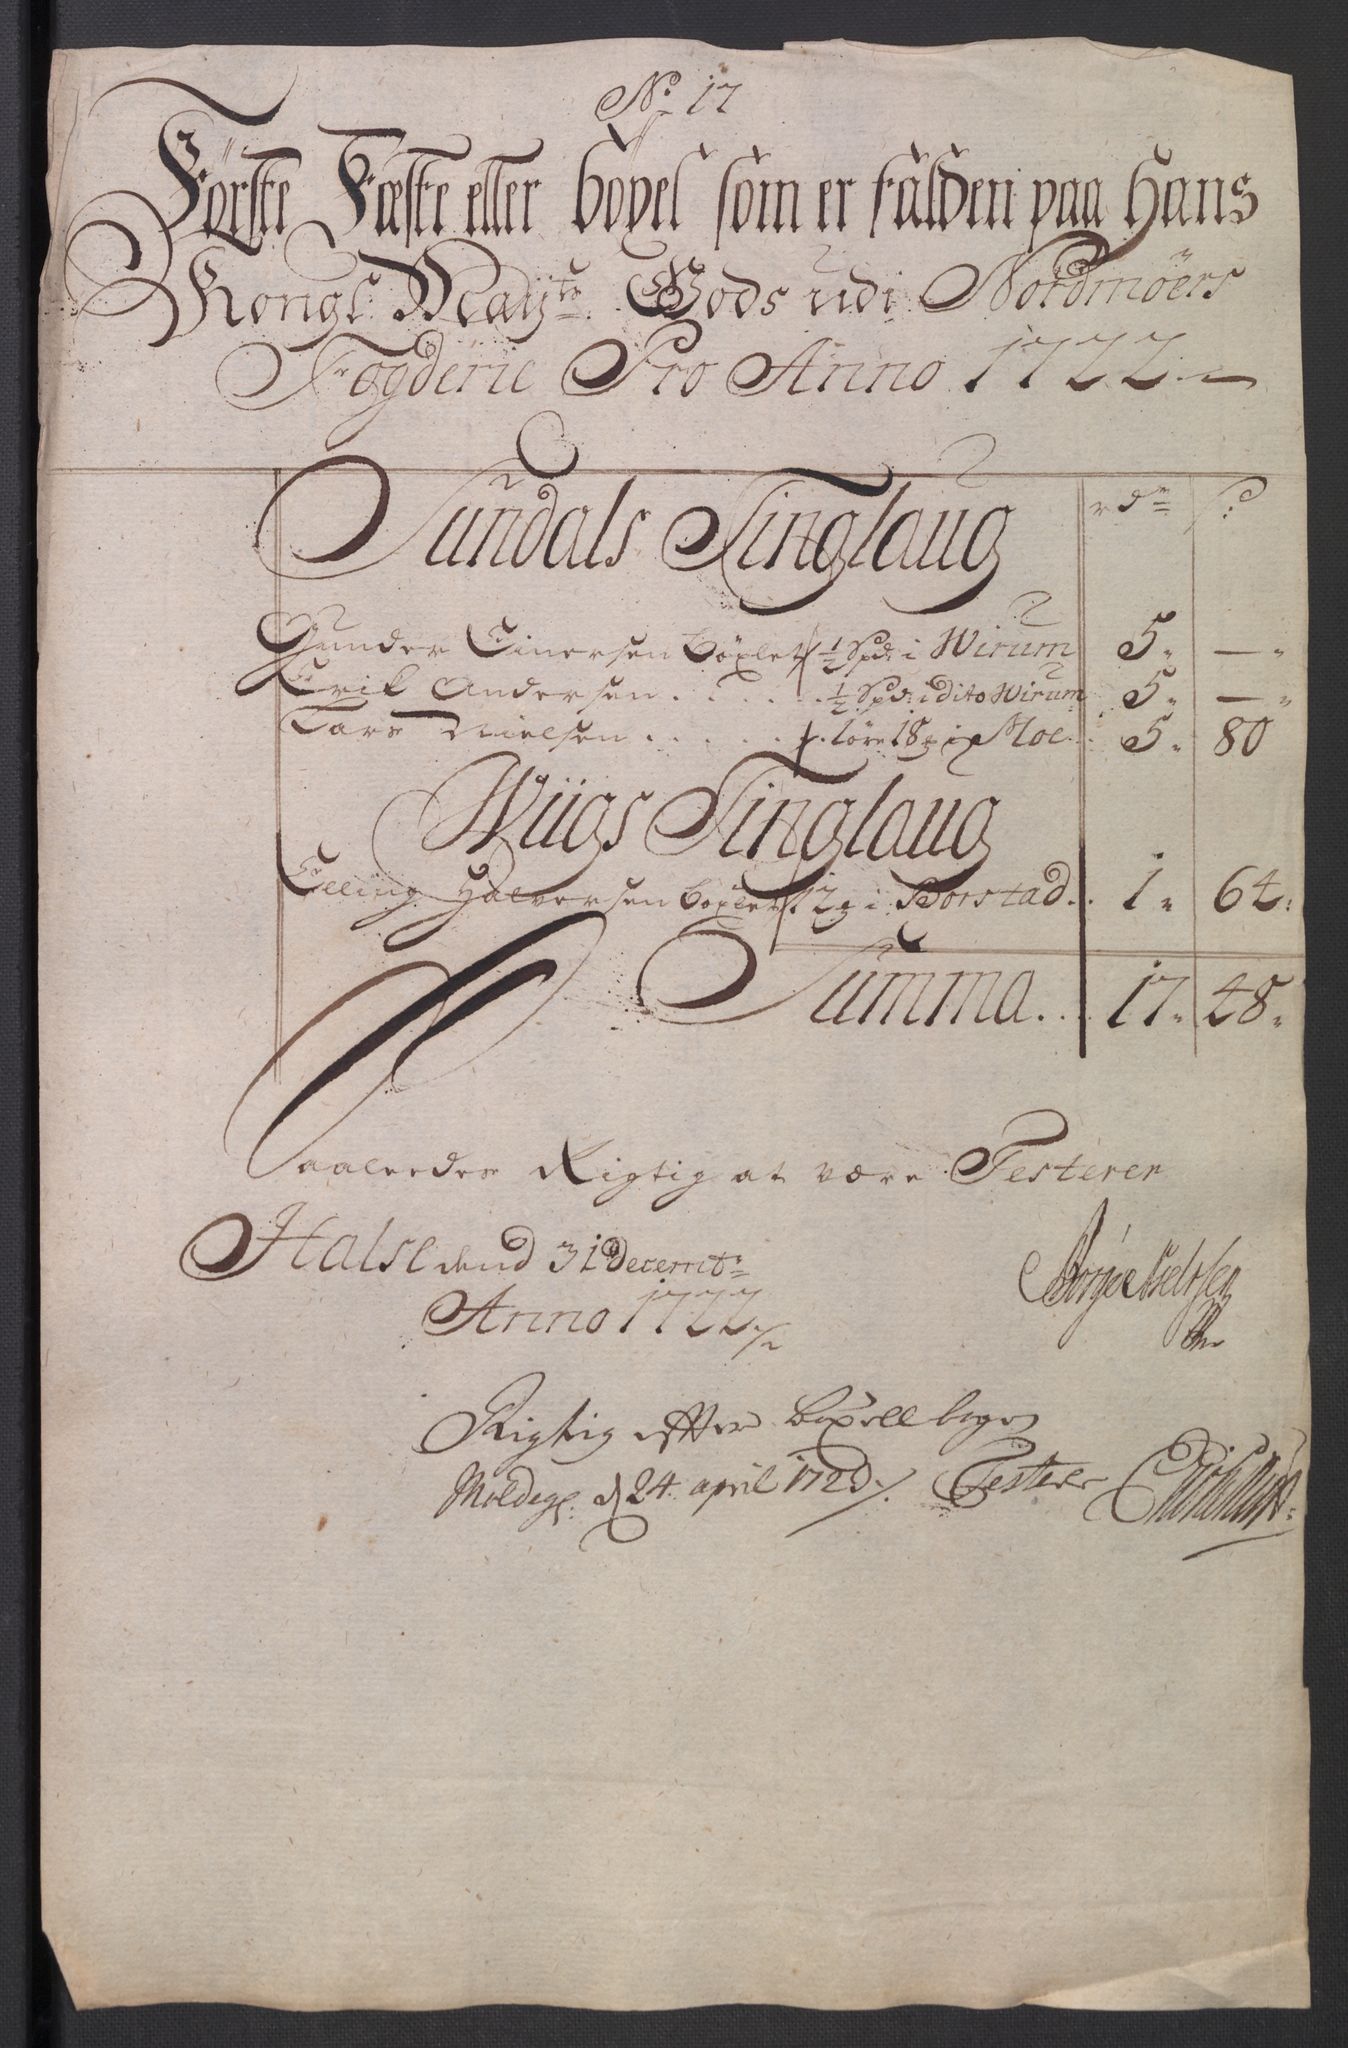 No 17
Förste Fæste eller böxel som er fálden paa Hans
Kongl Mayts Gods udi Nordmöers
Fogderie Pro Anno 1722
Sundals Tinglaug rdr s:
Gunder Einersen böxlet 1/2 Spd: i Wirum 5" — "
Erik Andersen . . . . . 1/2 Spd: i dito Wirum 5" — "
Lars Nielsen . . . . . 1 öre 18 i Moe . 5" 80
Wiigs Tinglaug
Elling Halvorsen böxlet 12 i Borstad . . 1" 64:
Summa . . . 17" 48"
Saaledes Rigtig at være Testerer
Halse dend 31 Decembr:
Anno 1722
Rigtig efter böxell bogen
Moldegd. d 24 april 1723. Testerer